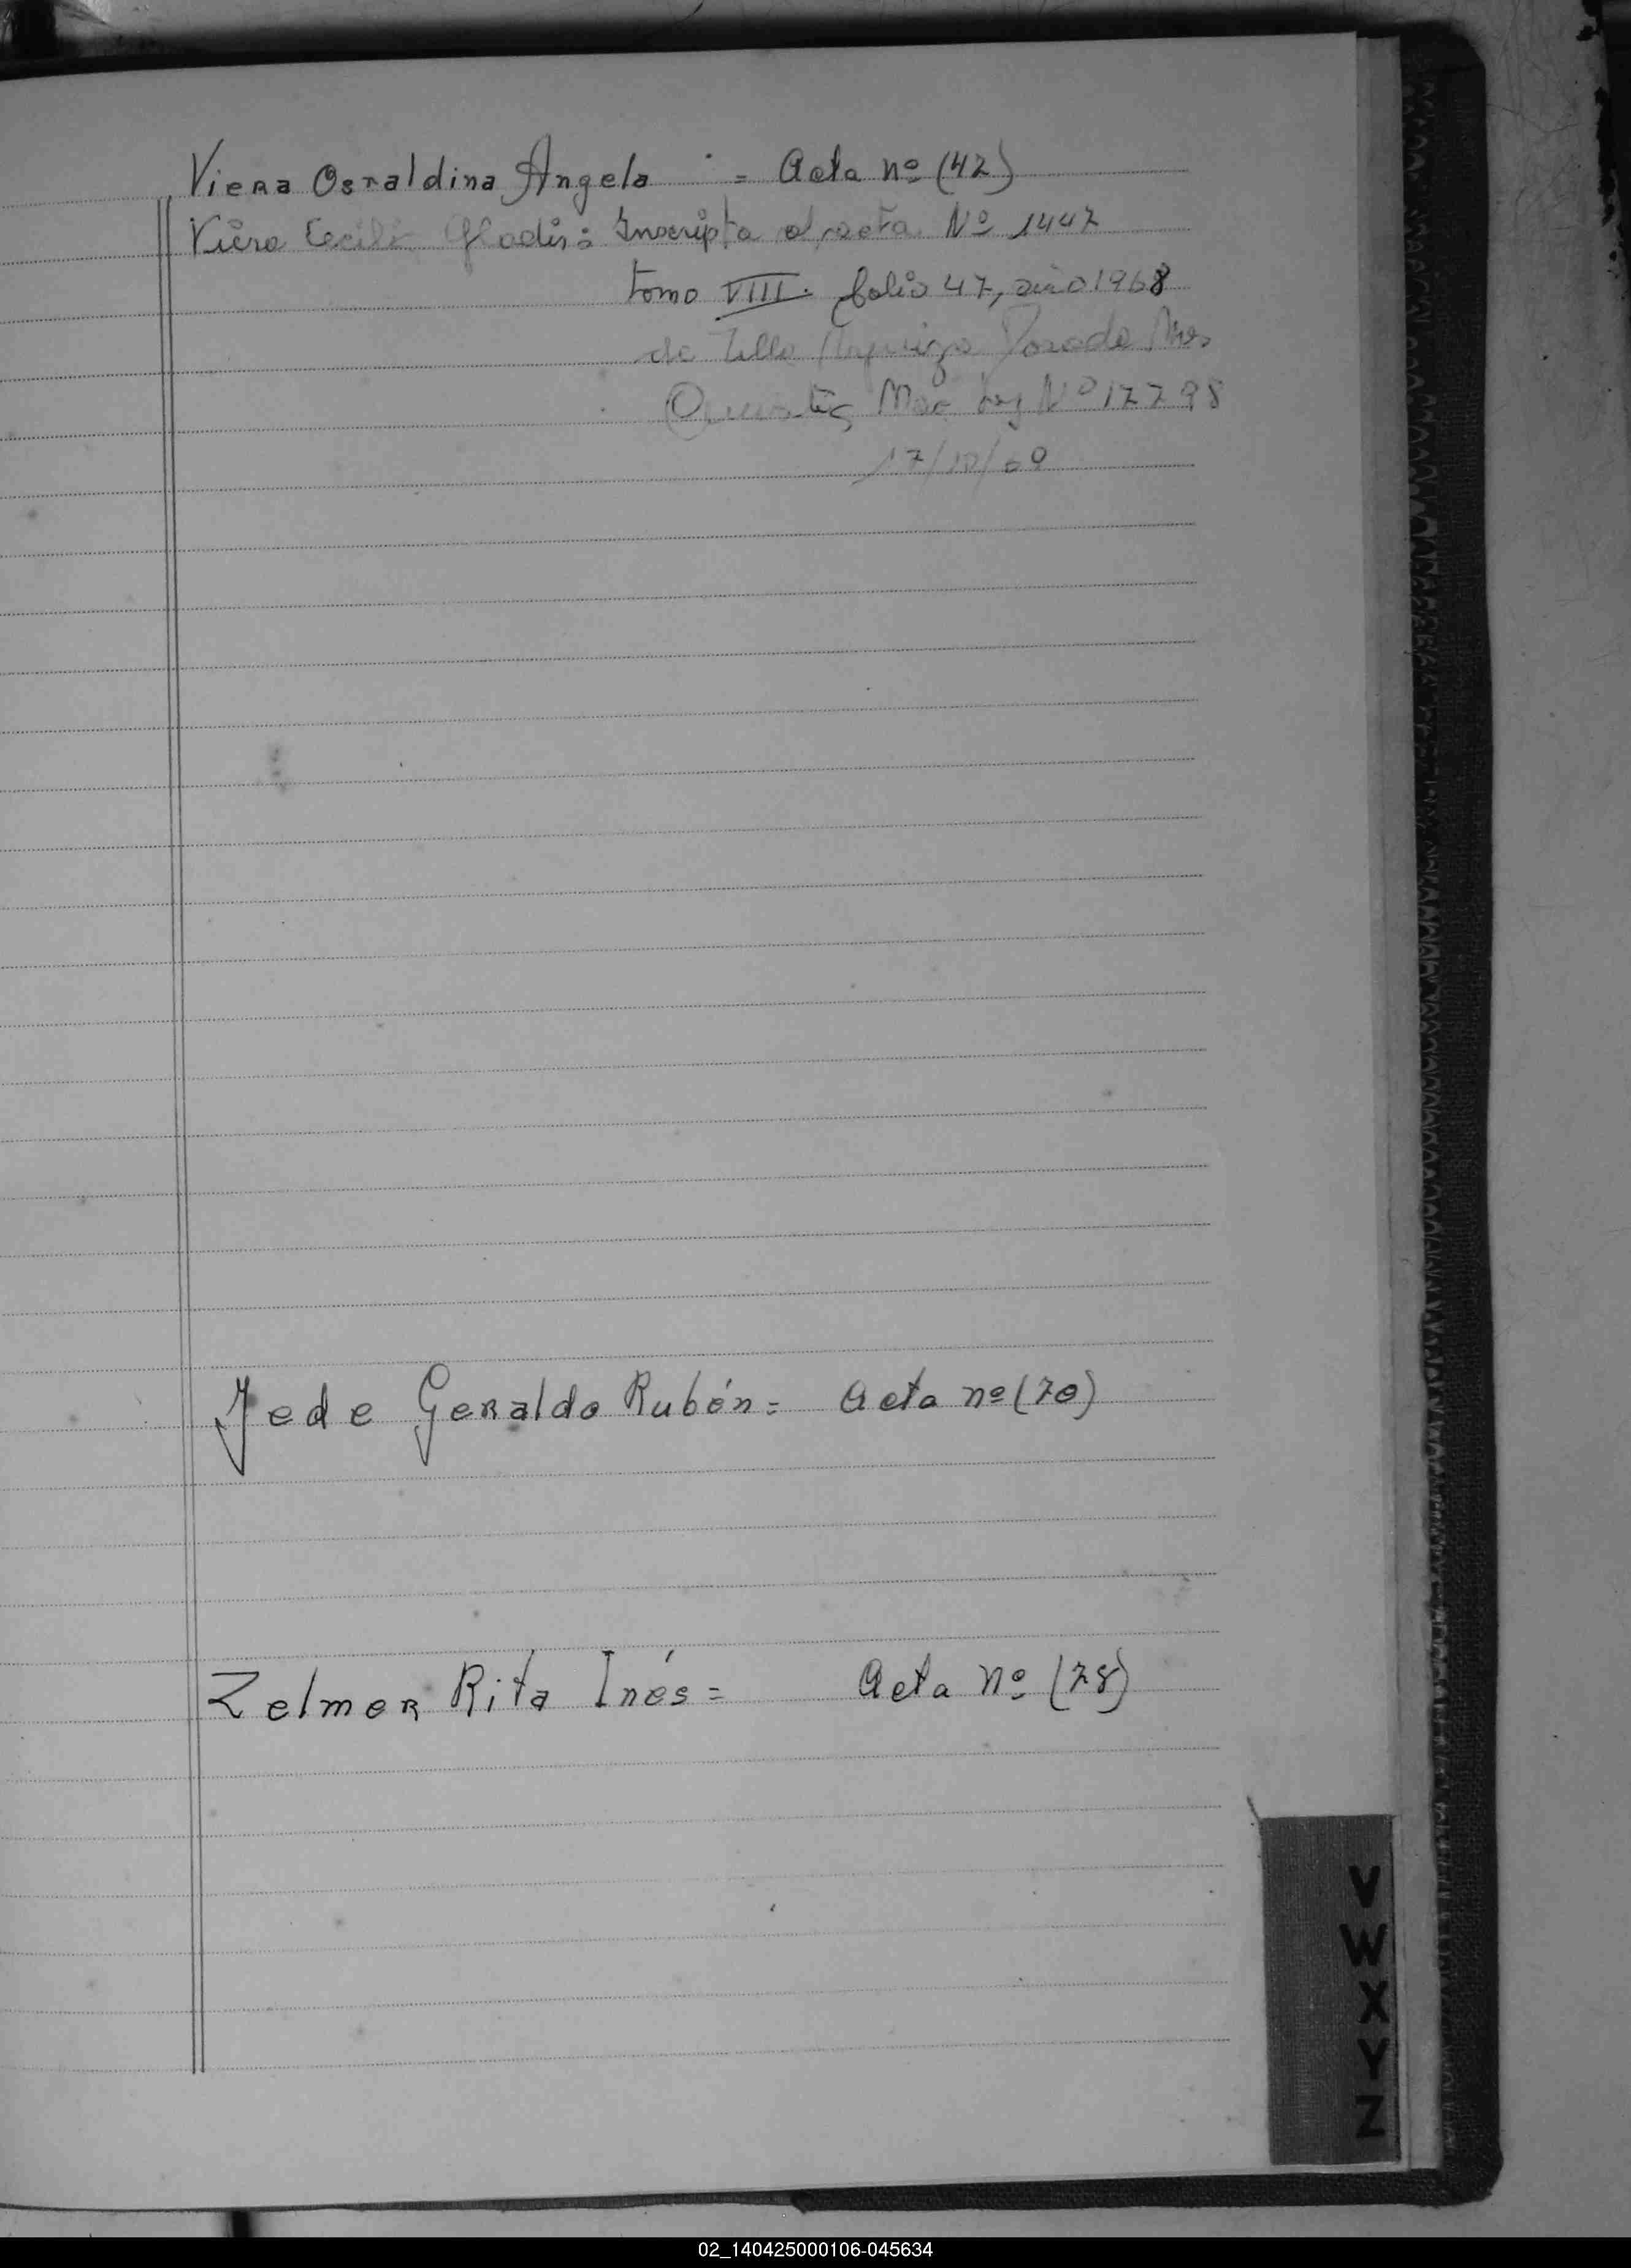 Viera Osvaldina Angela = Acta nº (42)
Viera Cecilia Gladis: Inscripta al acta Nº 1447
tomo VIII. folio 47, año 1968
de Posadas Mnes.
Nº 17798
17/10/69
Yede Geraldo Rubén = Acta nº (70)
Zelmer Rita Inés = Acta nº (78)
V
W
X
Y
Z
02_140425000106-045634